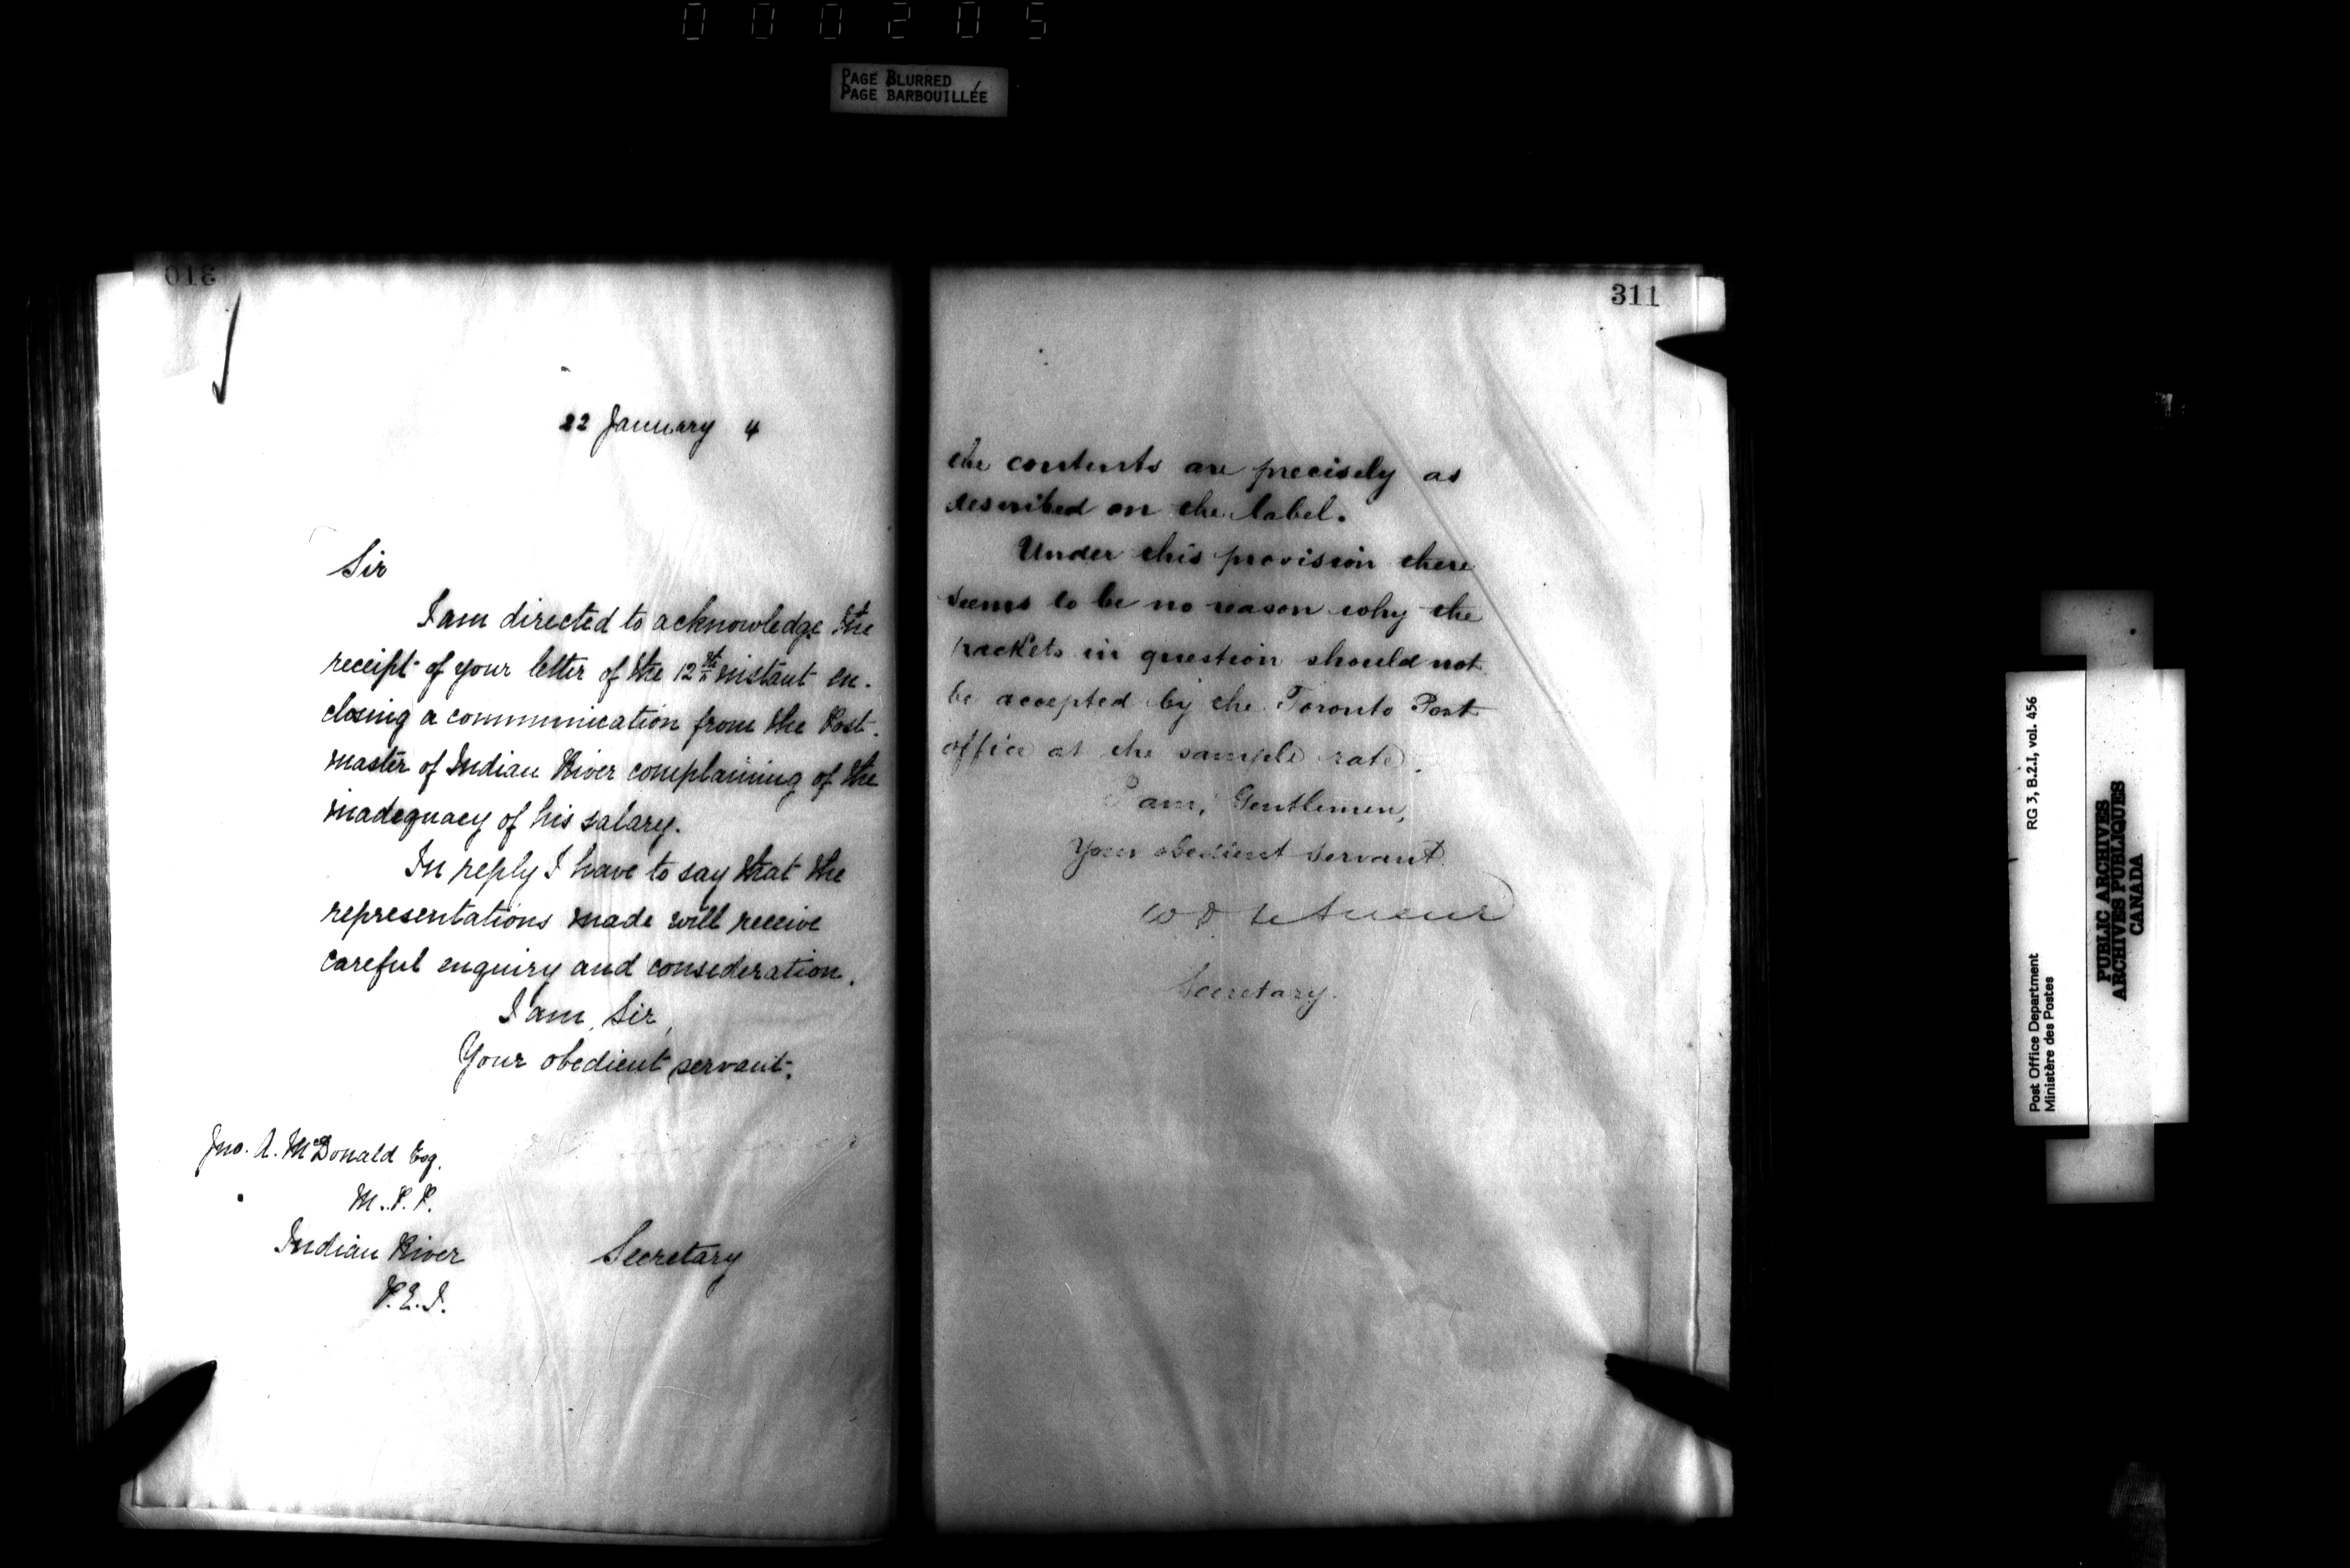 000205
PAGE BLURRED
PAGE BARBOUILLÉE
310
22 January 4
Sir
I am directed to acknowledge the
receipt of your letter of the 12th instant en-
closing a communication from the Post-
master of Indian River complaining of the
inadequacy of his salary.
In reply I have to say that the
representations made will receive
careful enquiry and consideration.
I am, Sir,
Your obedient servant.
Jno. A. McDonald Esq.
M.P.P.
Indian River
P.E.I.
Secretary
311
the contents are precisely as
described on the label.
Under this provision there
seems to be no reason why the
packets in question should not
be accepted by the Toronto Post
office at the sample rate.
I am, Gentlemen,
Your obedient servant.
W D LeSueur
Secretary.
RG 3, B.2.I, vol. 456
Post Office Department
Ministère des Postes
PUBLIC ARCHIVES
ARCHIVES PUBLIQUES
CANADA